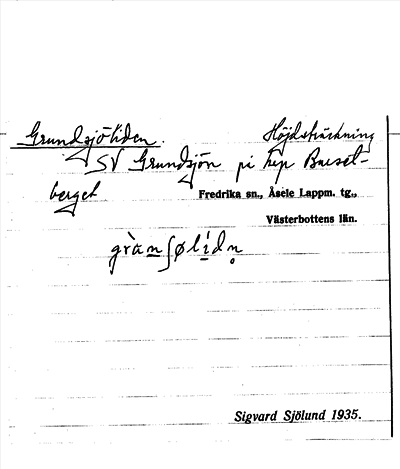 Grundsjöliden. Höjdsträckning
SV Grundsjön på
berget
Fredrika sn., Åsele Lappm. tg.,
Västerbottens län.
Sigvard Sjölund 1935.